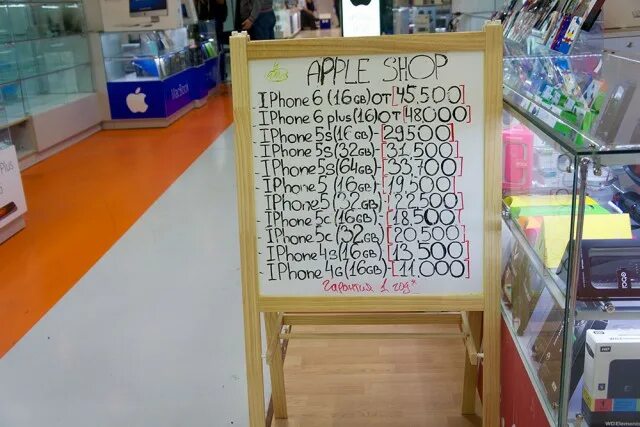 APPLE SHOP
IPhone 6 (16GB) ОТ [45.500]
IPhone 6 plus (16) ОТ [48000]
-IPhone 5s (16GB) - [29500]
-IPhone 5s (32GB) - [31.500]
-IPhone 5s (64GB) - [33.700]
-IPhone 5 (16GB) - [19.500]
-IPhone 5 (32GB) - [22500]
-IPhone 5c (16GB) - [18.500]
-IPhone 5c (32GB) [20.500]
-IPhone 4s (16GB) - [13.500]
-IPhone 4G (16GB) - [11.000]
Гарантия 1 год*
MacBook
Plus
WD